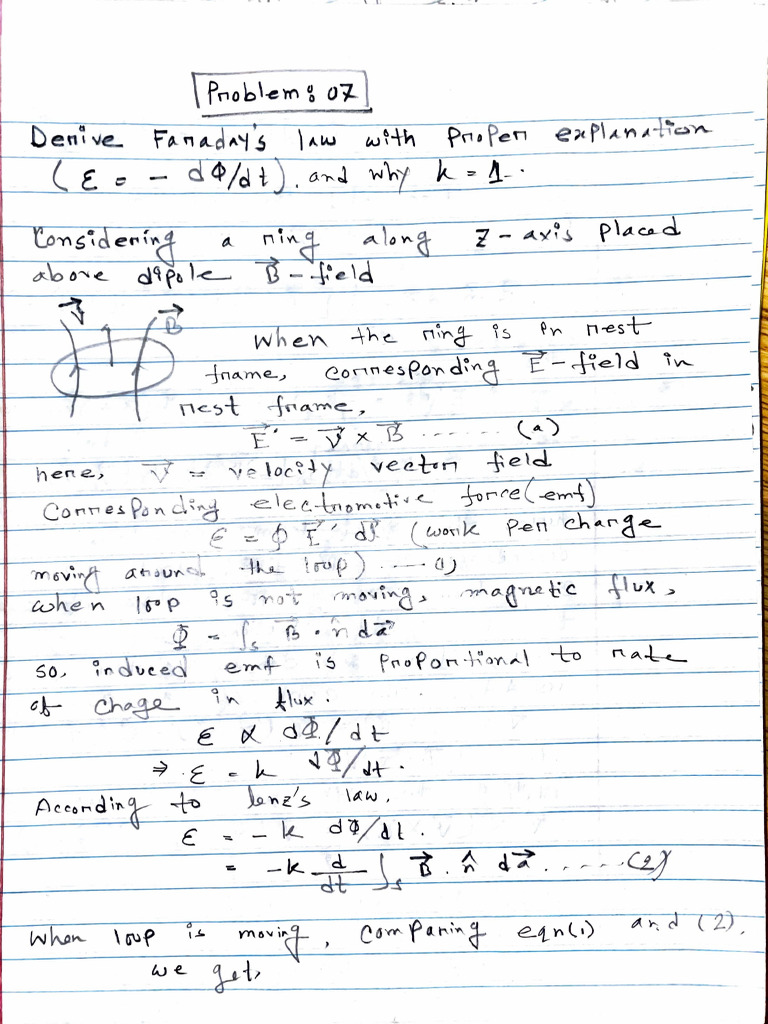 Problem: 07
Derive Faraday's law with proper explanation
(ε = - dΦ/dt). and why k = 1.
Considering a ring along Z-axis placed
above dipole B⃗-field
V⃗ B⃗
When the ring is in rest
frame, corresponding E⃗-field in
rest frame,
E⃗' = V⃗ × B⃗ ...... (a)
here, V⃗ = velocity vector field
Corresponding electromotive force(emf)
ε = ∮ E⃗' dl⃗ (work per charge
moving around the loop) .... (1)
when loop is not moving, magnetic flux,
Φ = ∫s B⃗ . n̂ da⃗
so, induced emf is proportional to rate
of chage in flux.
ε ∝ dΦ/dt
⇒ ε = k dΦ/dt.
According to lenz's law,
ε = -k dΦ/dt.
= -k d/dt ∫s B⃗ . n̂ da⃗ ...... (2)
When loop is moving, comparing eqn(1) and (2),
we get,